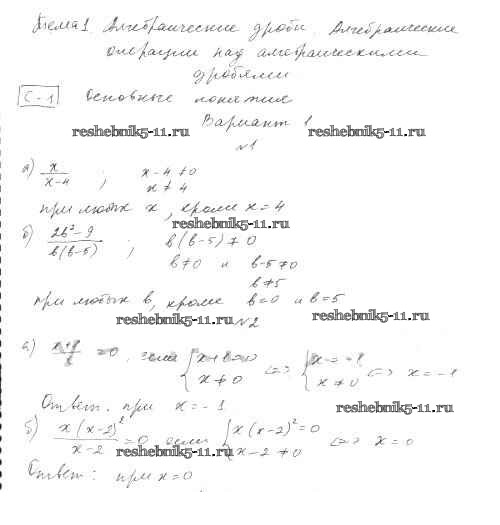 Тема 1. Алгебраические дроби. Алгебраические
операции над алгебраическими
дробями
С-1 Основные понятия
Вариант 1
reshebnik5-11.ru reshebnik5-11.ru
№1
а) x/(x-4) ; x-4≠0
x≠4
при любых x, кроме x=4
reshebnik5-11.ru
б) (2b²-9)/(b(b-5)) ; b(b-5)≠0
b≠0 и b-5≠0
b≠5
при любых b, кроме b=0 и b=5
reshebnik5-11.ru №2 reshebnik5-11.ru
а) =0, если
x≠0 x≠0 <=> x=-1
Ответ. при x=-1.
reshebnik5-11.ru
б) x(x-2)²/(x-2)=0 если { x(x-2)²=0
x-2≠0 <=> x=0
reshebnik5-11.ru
Ответ: при x=0